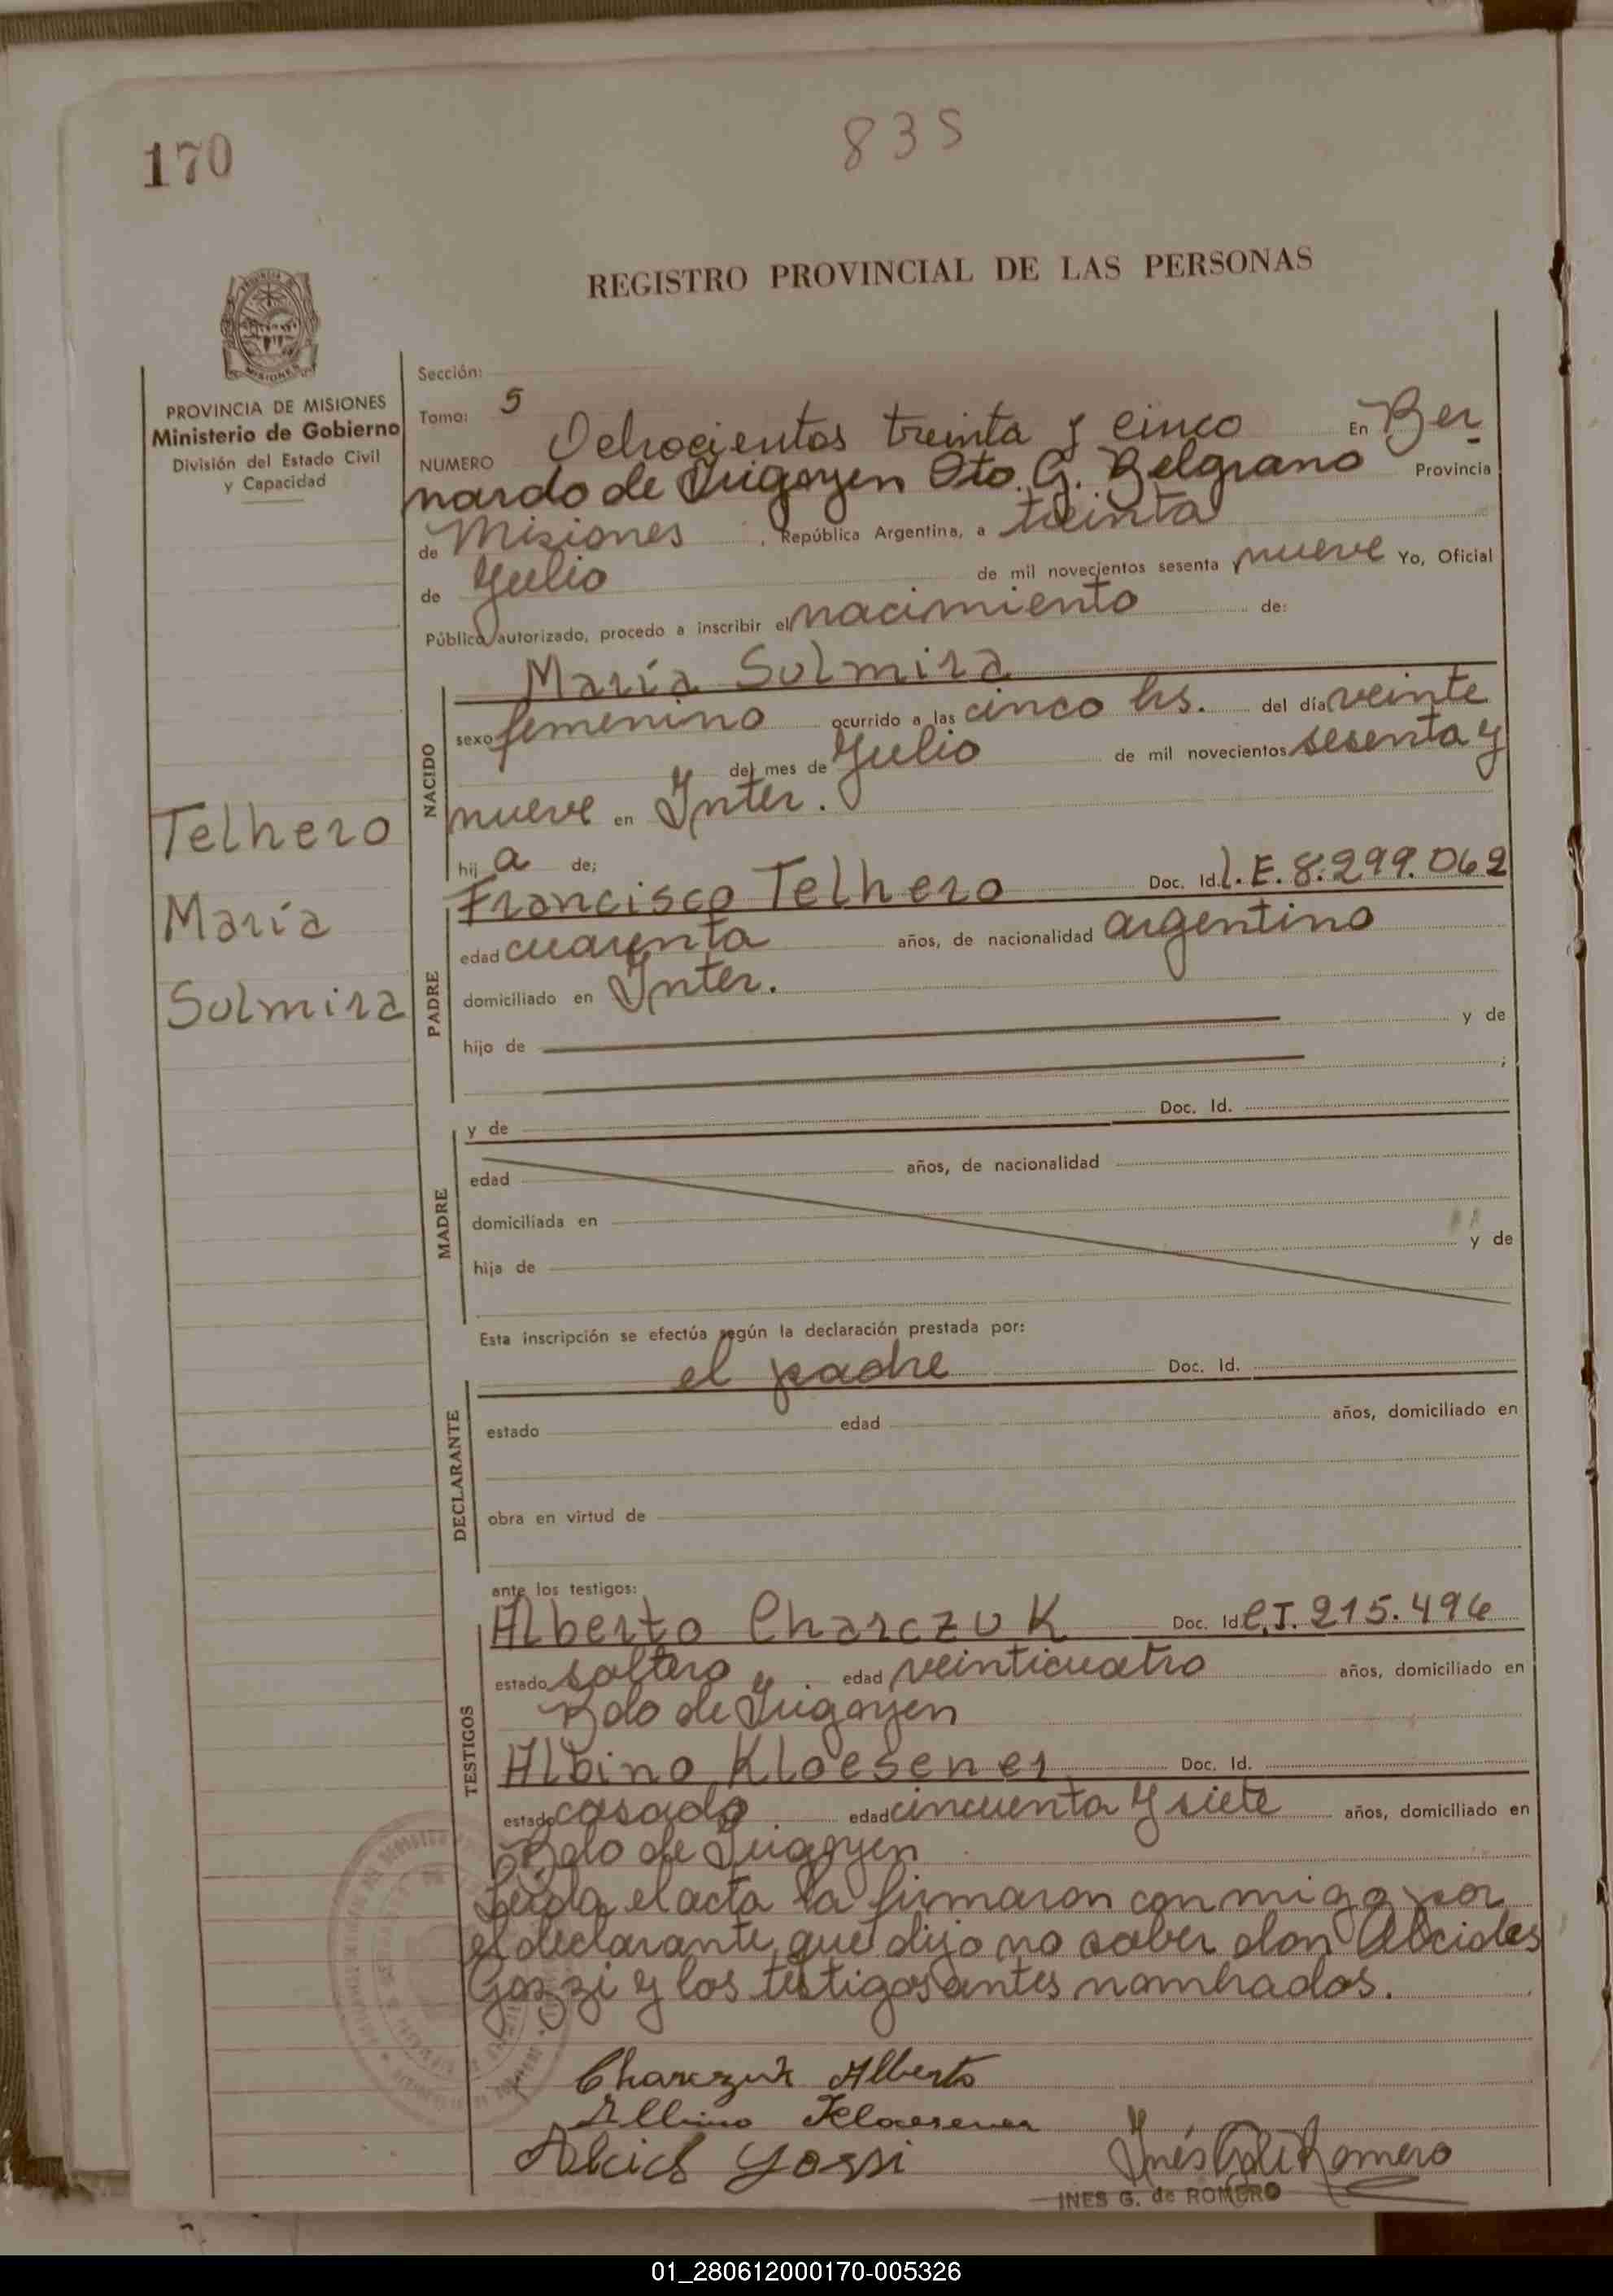 170
835
REGISTRO PROVINCIAL DE LAS PERSONAS
PROVINCIA DE MISIONES
Ministerio de Gobierno
División del Estado Civil
y Capacidad
Telhero
María
Solmira
Sección:
Tomo: 5
NUMERO Ochocientos treinta y cinco En Ber
nardo de Irigoyen Dto. G. Belgrano Provincia
de Misiones, República Argentina, a treinta
de Julio de mil novecientos sesenta y nueve Yo, Oficial
Público autorizado, procedo a inscribir el nacimiento de:
NACIDO
María Solmira
sexo femenino ocurrido a las cinco hs. del día veinte
del mes de Julio de mil novecientos sesenta y
nueve en Inter.
hija de;
PADRE
Francisco Telhero Doc. Id. L.E. 8.299.062
edad cuarenta años, de nacionalidad argentino
domiciliado en Inter.
hijo de y de
;
MADRE
y de Doc. Id.
edad años, de nacionalidad
domiciliada en
hija de y de
Esta inscripción se efectúa según la declaración prestada por:
DECLARANTE
el padre Doc. Id.
estado edad años, domiciliado en
obra en virtud de
ante los testigos:
TESTIGOS
Alberto Charczuk Doc. Id. C.I. 215.496
estado soltero edad veinticuatro años, domiciliado en
Bdo de Irigoyen
Albino Kloesener Doc. Id.
estado casado edad cincuenta y siete años, domiciliado en
Bdo de Irigoyen
Leida el acta la firmaron con migo por
el declarante que dijo no saber don Alcides
Gozzi y los testigos antes nombrados.
Charczuk Alberto
Albino Kloesener
INES G. de ROMERO
01_280612000170-005326